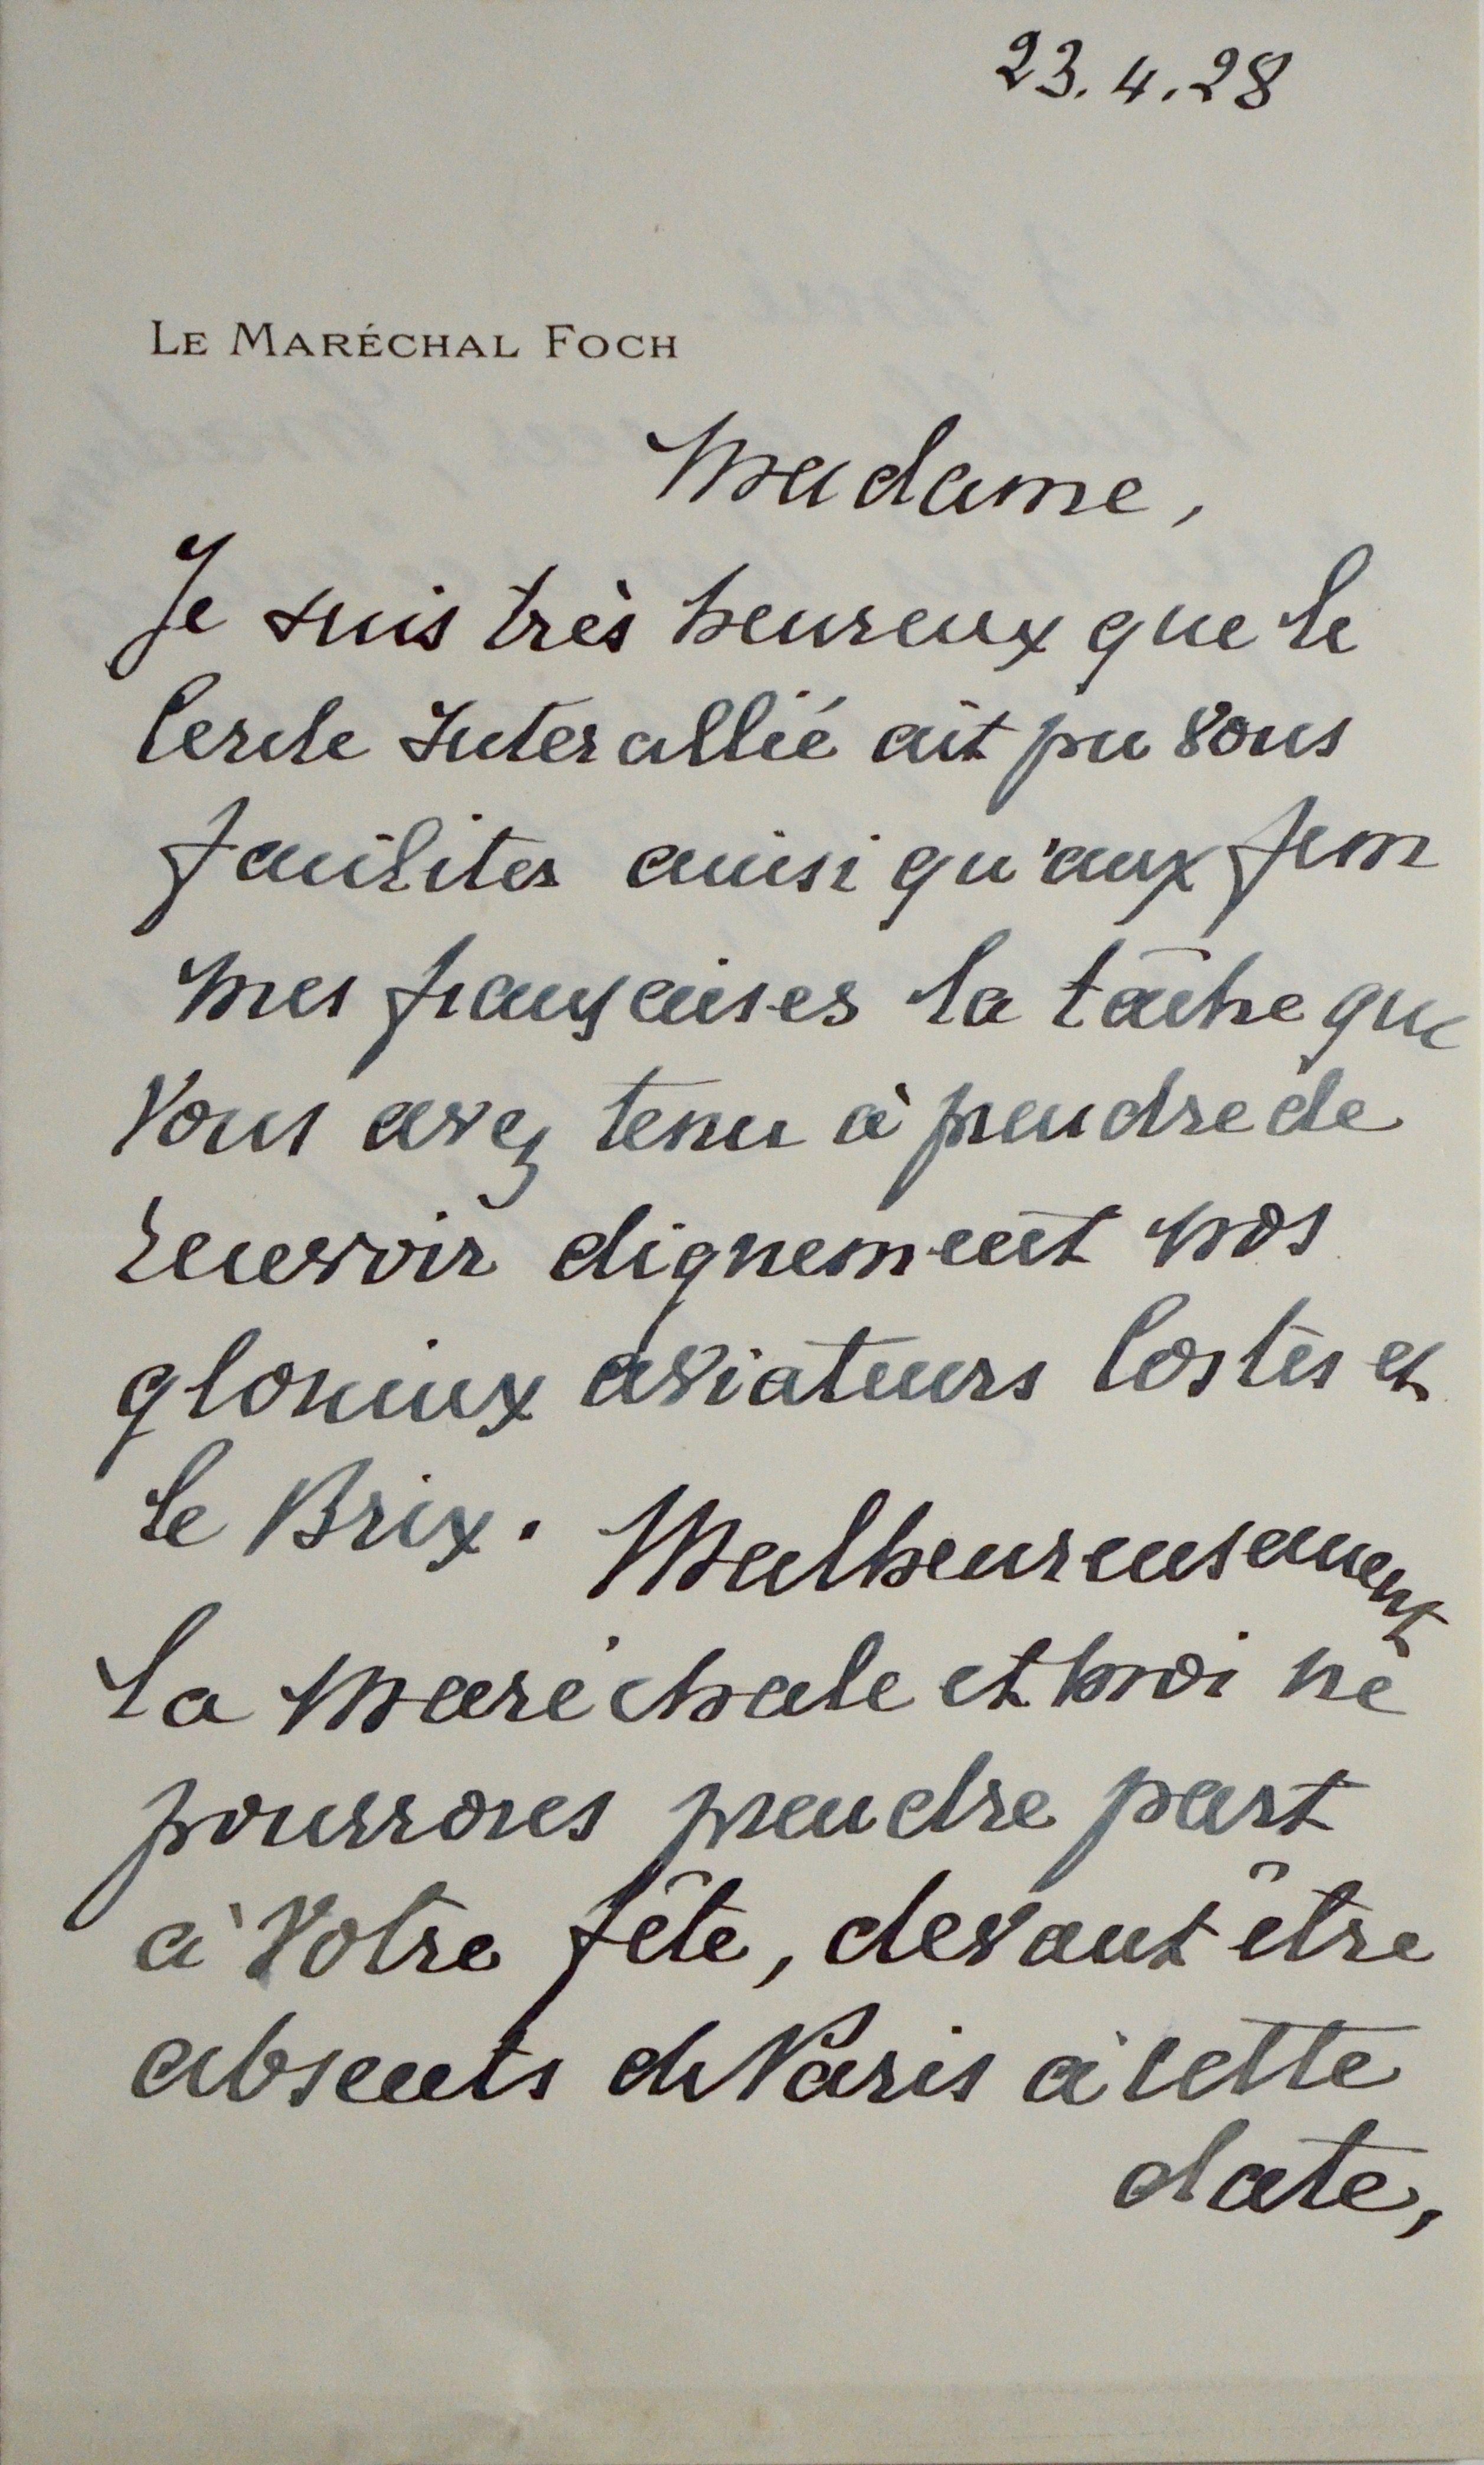 23.4.28
LE MARÉCHAL FOCH
Madame,
Je suis très heureux que le
Cercle Interallié ait pu vous
faciliter ainsi qu'aux fem
mes françaises la tâche que
Vous avez tenu à prendre de
recevoir dignement nos
glorieux aviateurs Costes et
le Brix. Malheureusement
la Maréchale et moi ne
pourrons prendre part
à Votre fête, devant être
absents de Paris à cette
date,